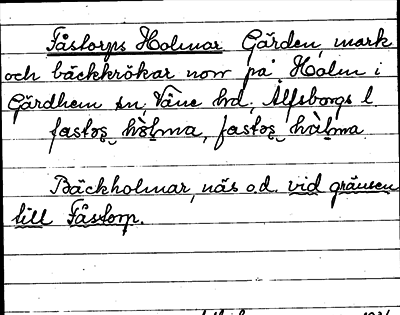 Fåstorps Holmar Gärden, mark
och bäckkrökar norr på Holm i
Gärdhem sn, Väne hd, Älfsborgs l
Bäckholmar, näs o.d. vid gränsen
till Fåstorp.